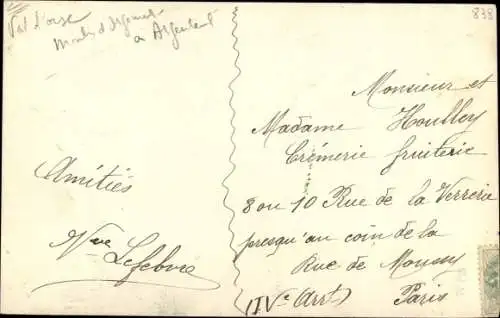 Val d'oise
Moulin d'Orgemont
a Argenteuil
838
Amitiés
Vve Lefebvre
Monsieur et
Madame Houlley
Crémerie fruiterie
8 ou 10 Rue de la Verrerie
presqu'au coin de la
Rue de Moussy
(IVe Arrt) Paris